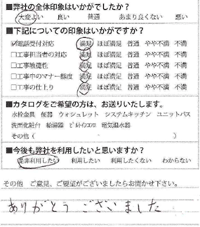 ■弊社の全体印象はいかがでしたか？
大変よい 良い 普通 あまり良くない 悪い
■下記についての印象はいかがですか？
☑電話受付対応 満足 ほぼ満足 普通 やや不満 不満
□工事担当者の対応 満足 ほぼ満足 普通 やや不満 不満
□工事施工性 満足 ほぼ満足 普通 やや不満 不満
□工事中のマナー・態度 満足 ほぼ満足 普通 やや不満 不満
□工事の仕上り 満足 ほぼ満足 普通 やや不満 不満
■カタログをご希望の方は、お送りいたします。
水栓金具 便器 ウォシュレット システムキッチン ユニットバス
洗面化粧台 給湯器 ビルトインコンロ 電気温水器
その他（ ）
■今後も弊社を利用したいと思いますか？
是非利用したい 利用したい 利用したくない わからない
その他 ご意見、ご要望がございましたらお聞かせ下さい。
ありがとうございました